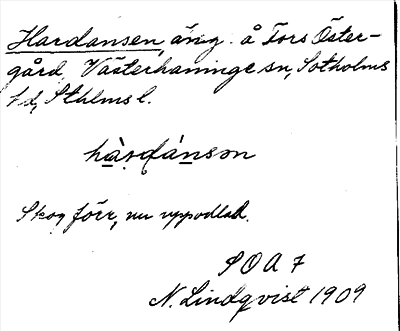 Hardansen, äng. å Fors Öster-
gård, Västerhaninge sn, Sotholms
hd, Sthlms l.
hàrdánsən
Skog förr, nu uppodlad.
SOA 7
N. Lindqvist 1909